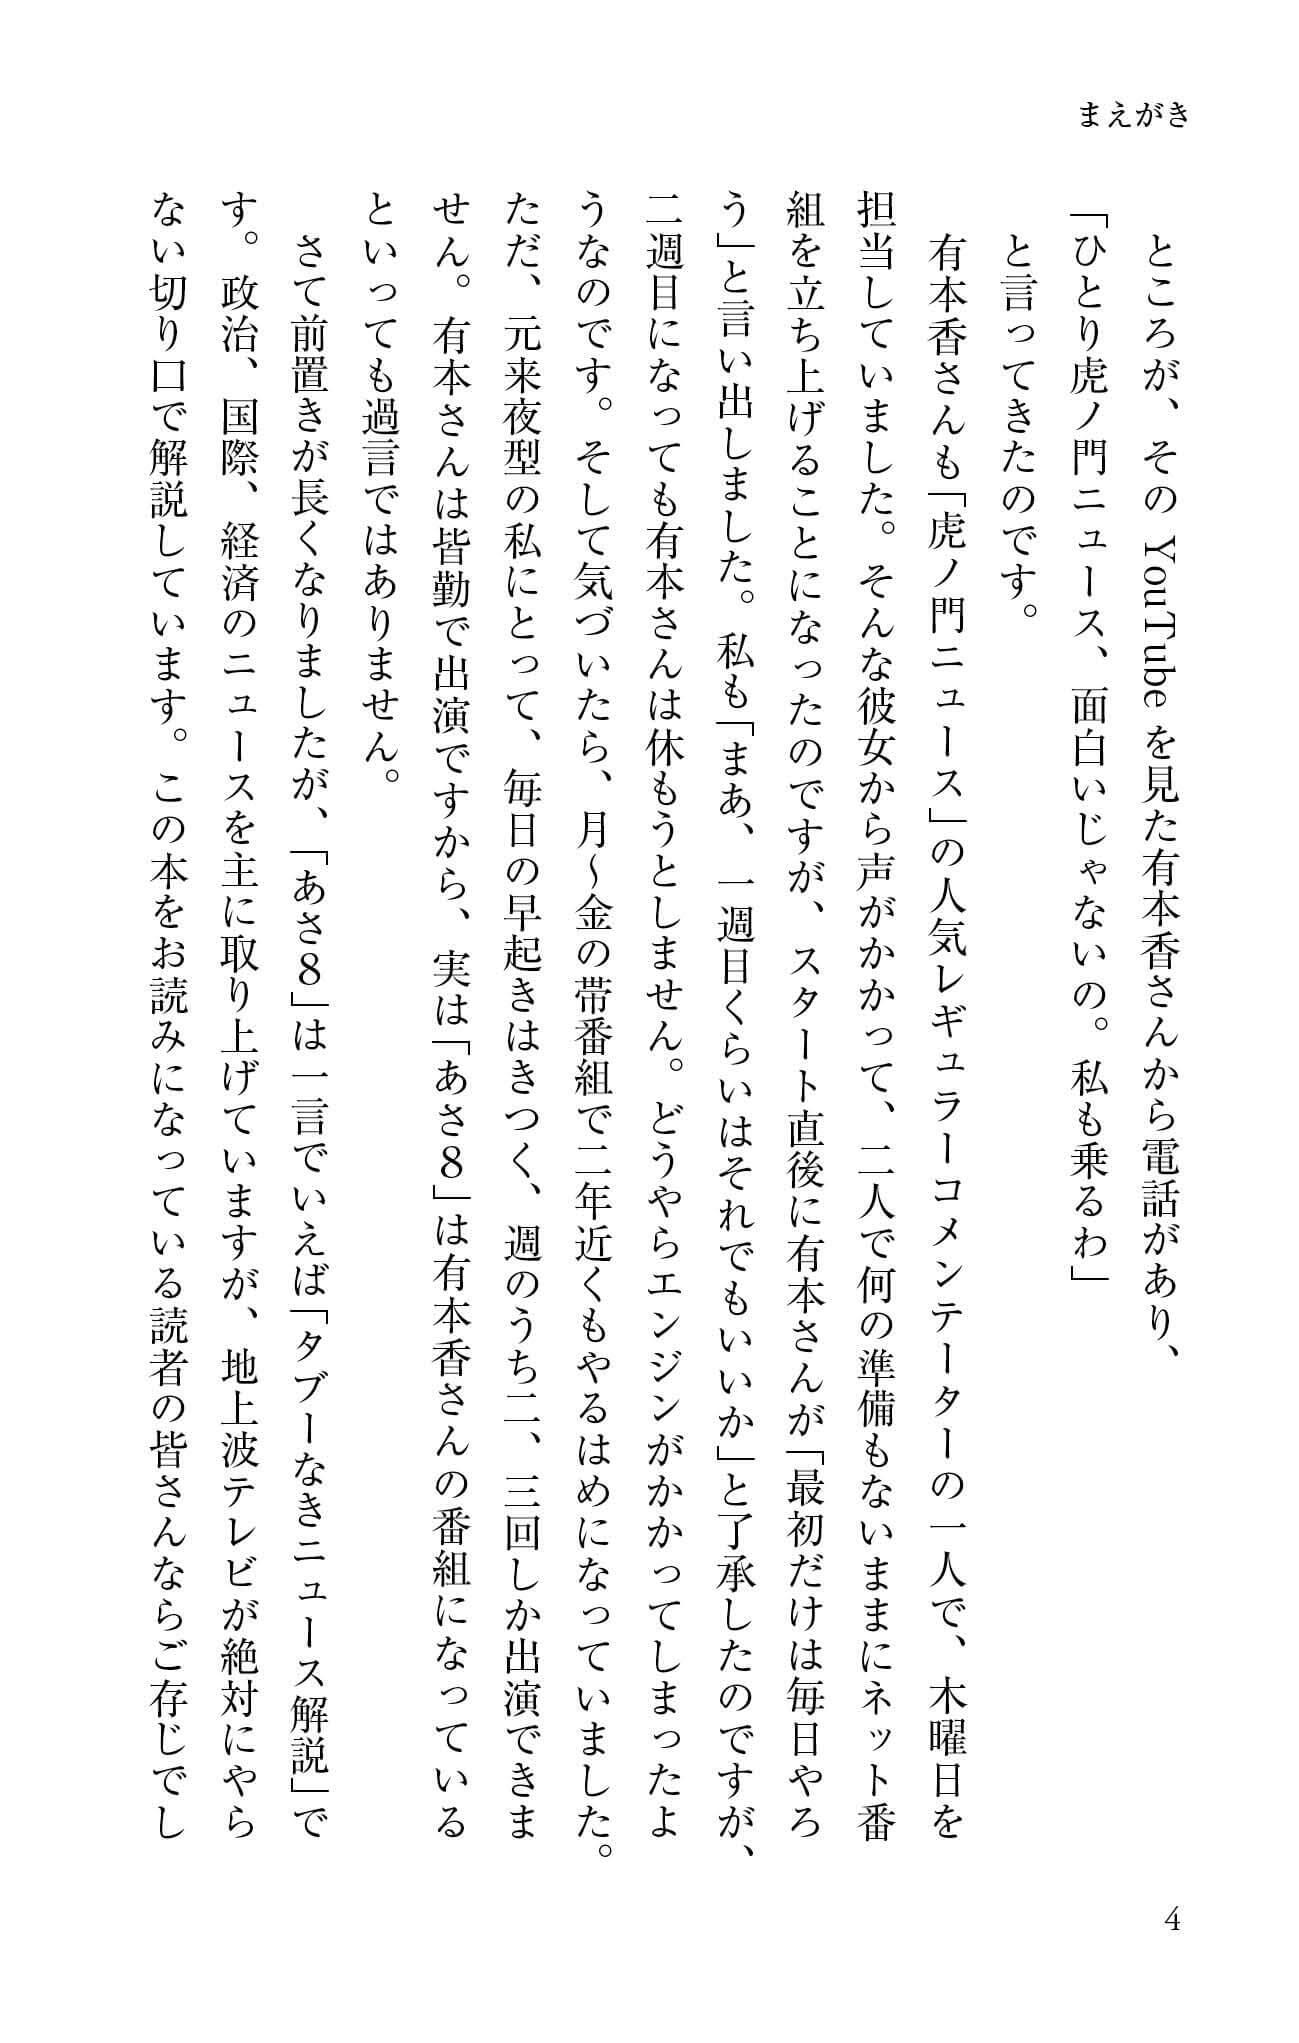 まえがき
ところが、その YouTube を見た有本香さんから電話があり、
「ひとり虎ノ門ニュース、面白いじゃないの。私も乗るわ」
と言ってきたのです。
有本香さんも「虎ノ門ニュース」の人気レギュラーコメンテーターの一人で、木曜日を
担当していました。そんな彼女から声がかかって、二人で何の準備もないままにネット番
組を立ち上げることになったのですが、スタート直後に有本さんが「最初だけは毎日やろ
う」と言い出しました。私も「まあ、一週目くらいはそれでもいいか」と了承したのですが、
二週目になっても有本さんは休もうとしません。どうやらエンジンがかかってしまったよ
うなのです。そして気づいたら、月〜金の帯番組で二年近くもやるはめになっていました。
ただ、元来夜型の私にとって、毎日の早起きはきつく、週のうち二、三回しか出演できま
せん。有本さんは皆勤で出演ですから、実は「あさ８」は有本香さんの番組になっている
といっても過言ではありません。
さて前置きが長くなりましたが、「あさ８」は一言でいえば「タブーなきニュース解説」で
す。政治、国際、経済のニュースを主に取り上げていますが、地上波テレビが絶対にやら
ない切り口で解説しています。この本をお読みになっている読者の皆さんならご存じでし
4